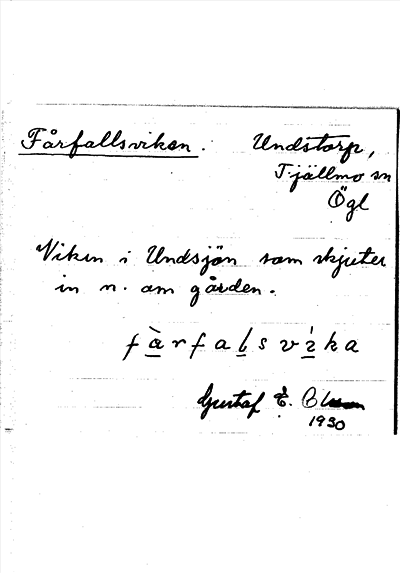 Fårfallsviken. Undstorp,
Tjällmo sn
Ögl
Viken i Undsjön som skjuter
in n. om gården.
fàrfalsvíka
Gustaf E. Olsson
1930